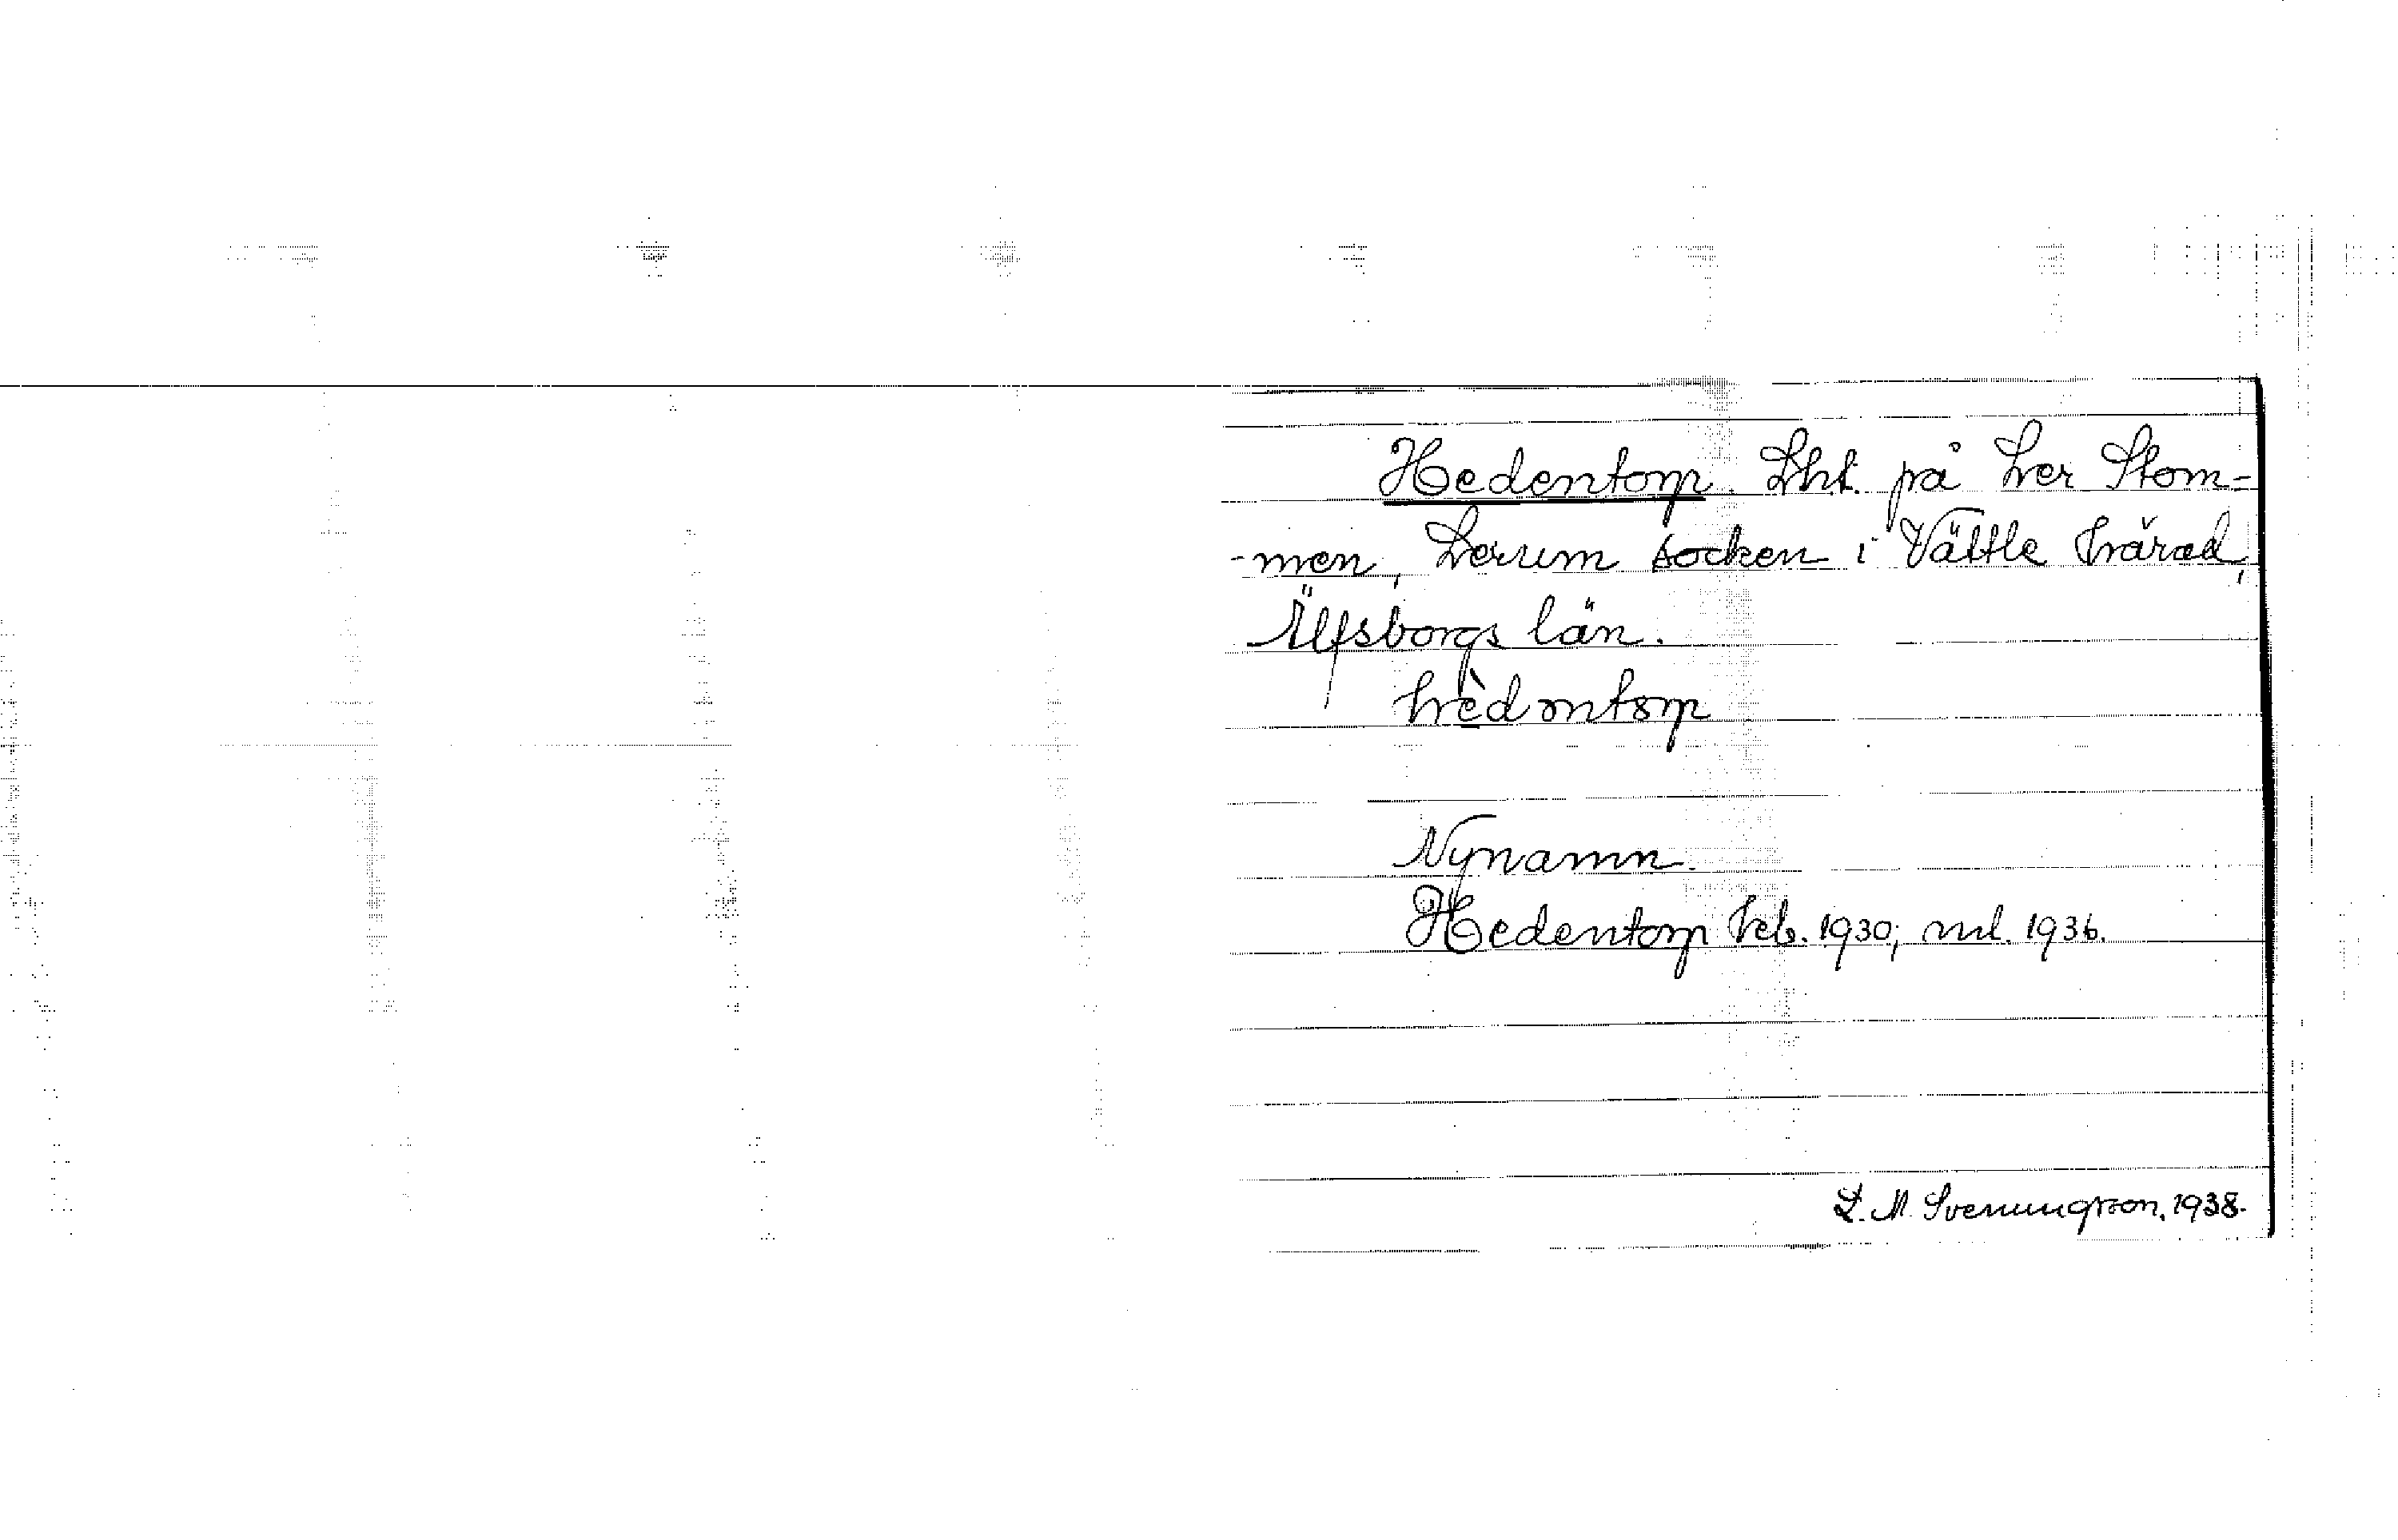 Hedentorp. Lht. på Ler Stom=
-men, Lerum socken i Vättle härad,
Älfsborgs län.
hèdəntorp
Nynamn.
Hedentorp hcb. 1930, ml. 1936.
L. M. Svenungsson, 1938.